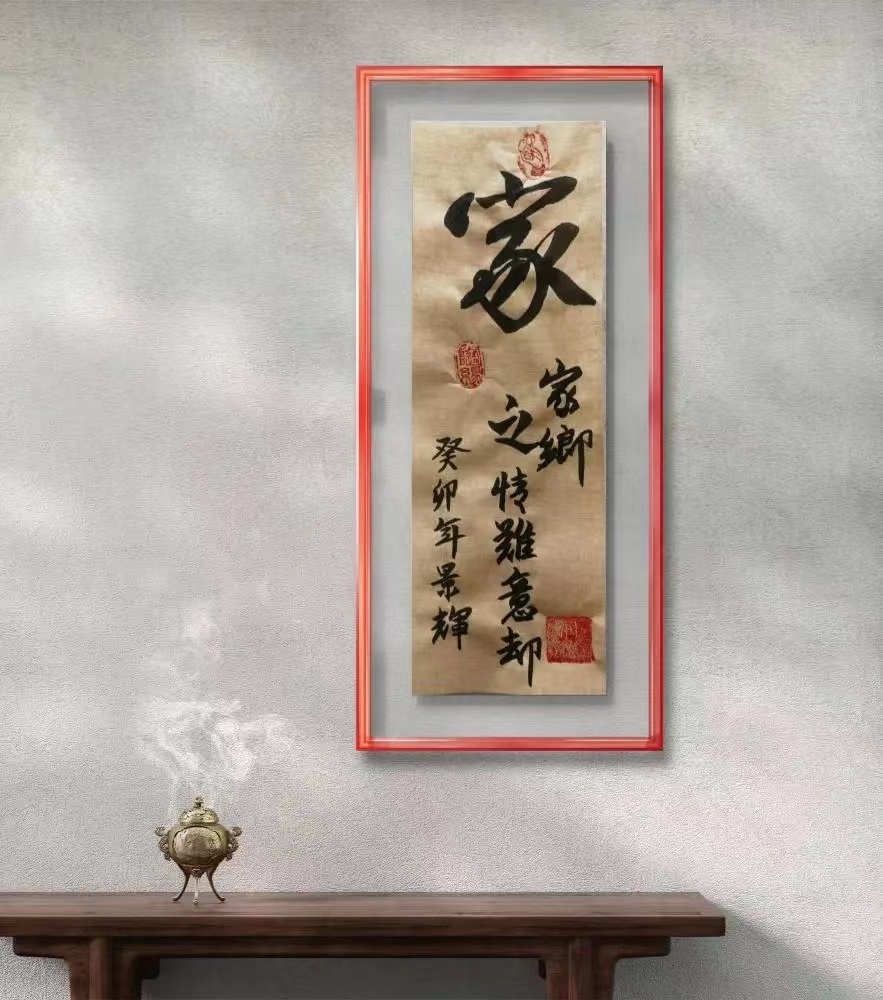 家
家鄉
之情難意却
癸卯年景輝